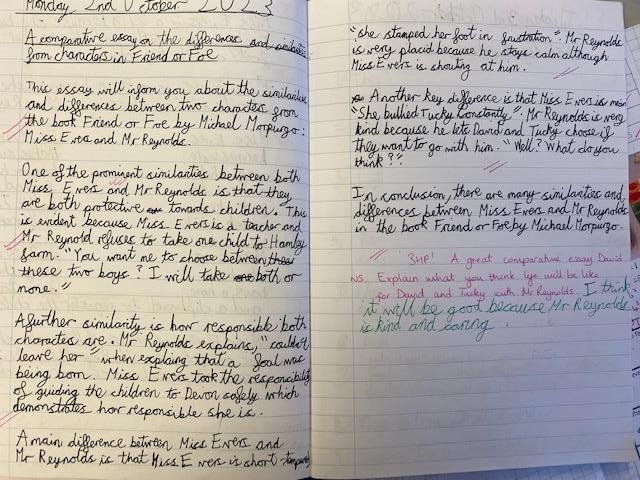 Monday 2nd October 2023
A comparative essay on the differences and
from characters in Friend or Foe
This essay will infom you about the similarities
and differences between two characters from
the book Friend or Foe by Michael Morpurgo:
Miss Evers and Mr Reynolds.
One of the prominent similarities between both
Miss Evers and Mr Reynolds is that they
are both protective towards children. This
is evident because Miss Evers is a teacher and
Mr Reynold refuses to take one child to
farm. "You want me to choose between
these two boys? I will take both or
none."
A further similarity is how responsible both
characters are. Mr Reynolds explains, "couldn't
leave her" when explaing that a foal was
being born. Miss Evers took the responcibility
of guiding the children to Devon safely which
demonstrates how responsible she is.
A main difference between Miss Evers and
Mr Reynolds is that Miss Evers is short-tempered
"she stamped her foot in frustration." Mr Reynolds
is very placid because he stays calm although
Miss Evers is shouting at him.
Another key difference is that Miss Evers is mean
"She bullied Tucky constantly". Mr Reynolds is very
kind because he lets David and Tucky chose if
they want to go with him. "Well? What do you
think?"
In conclusion, there are many similarities and
differences between Miss Evers and Mr Reynolds
in the book Friend or Foe by Michael Morpurgo.
3HP! A great comparative essay David
NS. Explain what you think lye will be like
for David and Tucky with Mr Reynolds. I think
it will be good because Mr Reynolds
is kind and caring.